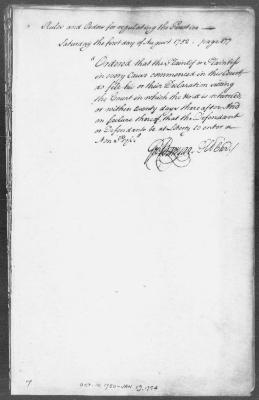 Rules and Orders for regulating the Practice
Saturday the first day of August 1752. page 87
"Ordered that the Plaintif or Plaintifs
in every Cause commenced in this Court
do file his or their Declaration during
the Court in which the Writ is returned
or within twenty days thereafter And
on failure thereof, that the Defendant
or Defendants be at Liberty to enter a
Non Pros.
OCT. 10, 1750-JAN. 19, 1754